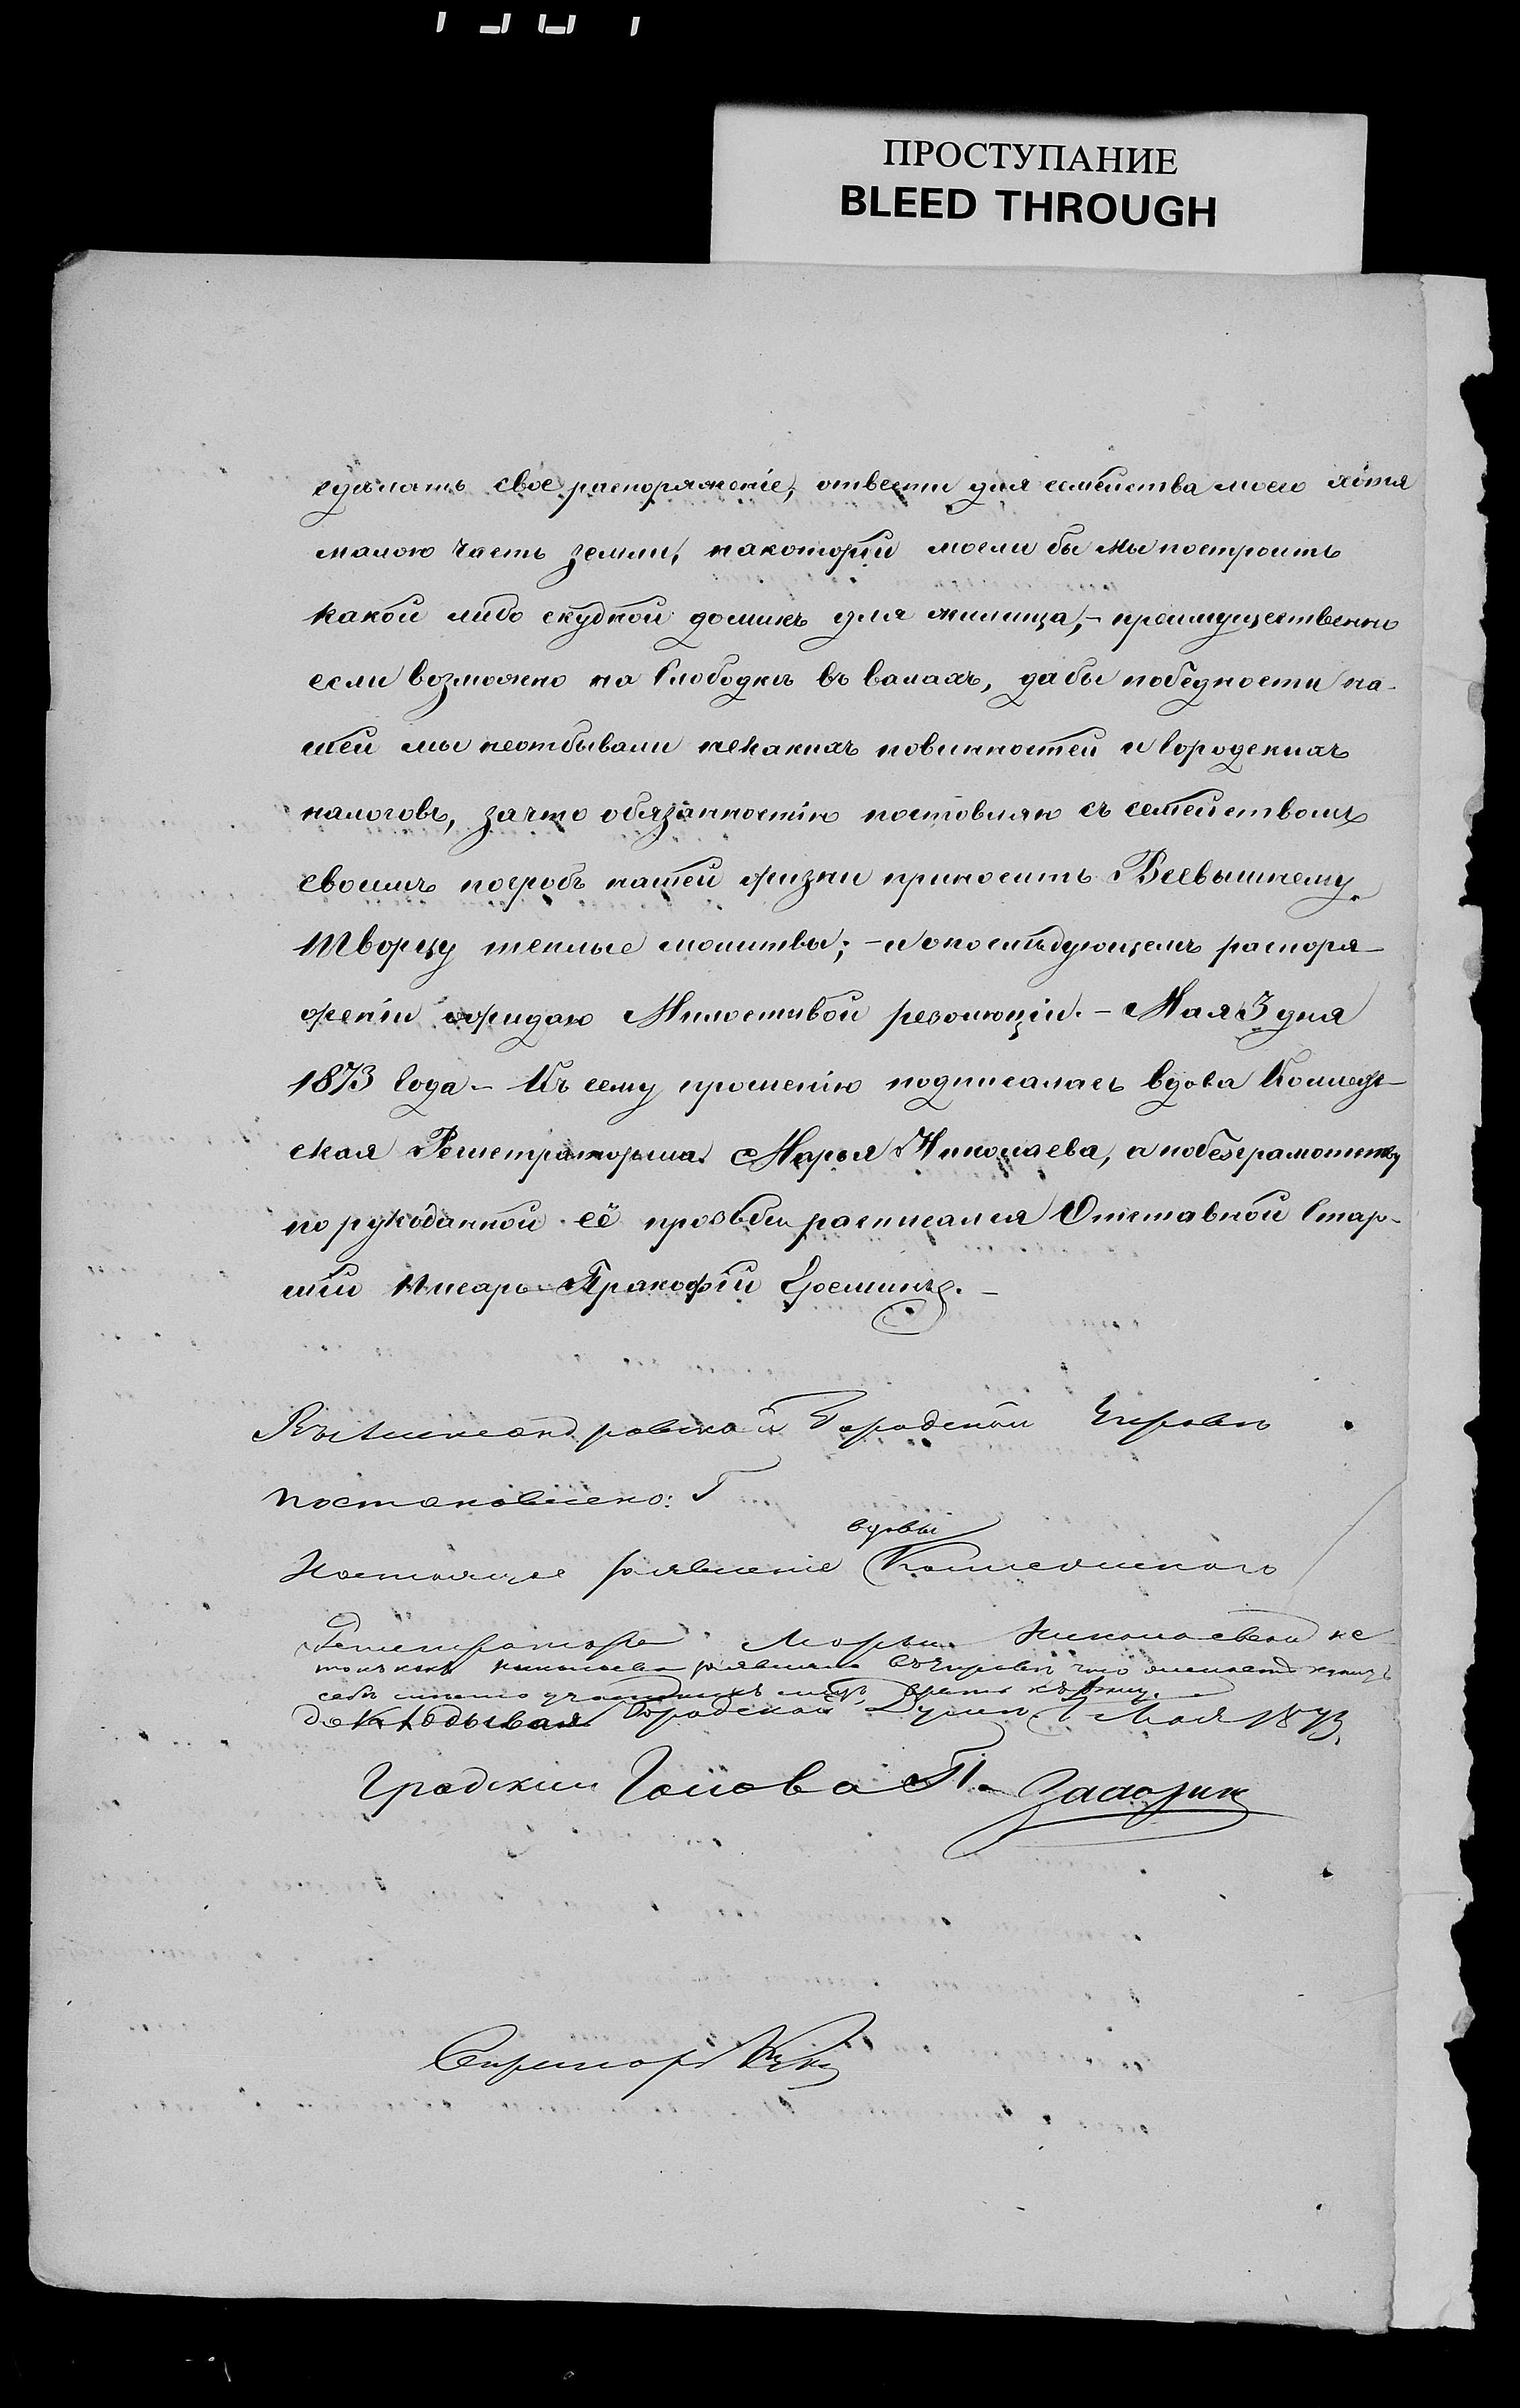 ПРОСТУПАНИЕ
BLEED THROUGH
сдѣлать свое распоряженіе, отвести для семейства моего хотя
малою часть земли, накоторой могли бы мы построить
какой либо скудной домикъ для жилища,- преимущественно
если возможно на Слободкѣ въ валахъ, дабы побѣдности на-
шей мы неотбывали некакихъ повинностей и городскихъ
налоговъ, зачто обязанностію постовляю съ семействомъ
своимъ погробъ нашей жизни приносить Всевышнему
Творцу теплые молитвы; - и опослѣдующемъ распоря-
женіи ожидаю Милостивой резолюціи. - Мая 3 дня
1873 Года - Къ сему прошенію подписалась вдова Коллеж-
ская Регистраторша Марья Николаева, а побезграмотству
по рукоданной её прозьбы расписался Отставной Стар-
шій Писарь Пракофій Ереминъ. -
Въ Александровской Городской Управѣ
постановлено:
вдовы
Настоящее заявленіе Коллежскаго
Регистратора Марьи Николаевой не
такъ какъ Николаева заявила въ Управѣ что
себѣ
докладывая Городской Думы. 7 Мая 1873.
Градскій Голова П.
Секретарь